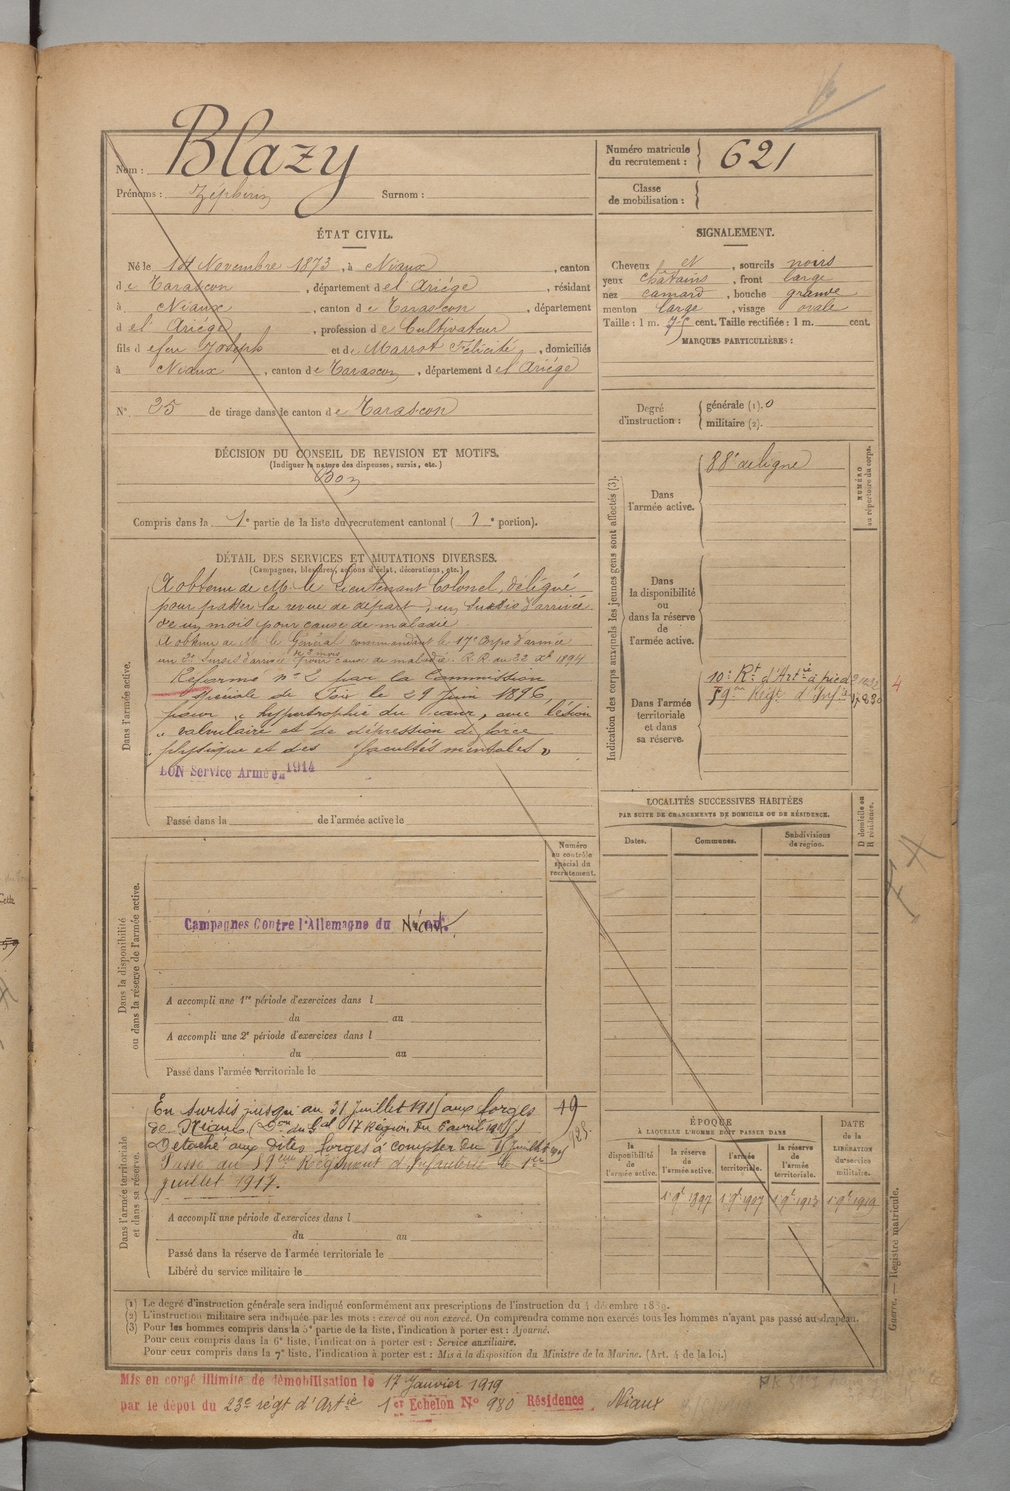 Nom : Blazy
Prénoms : Zéphirin Surnom :
Numéro matricule du recrutement : 621
Classe de mobilisation :
ÉTAT CIVIL.
Né le 1er Novembre 1873, à Niaux, canton
de Tarascon, département de l'Ariége, résidant
à Niaux, canton de Tarascon, département
de l' Ariége, profession de Cultivateur
fils de feu Joseph et de Marrot Félicité, domiciliés
à Niaux, canton de Tarascon, département de l'Ariége
N° 25 de tirage dans le canton de Tarascon
SIGNALEMENT.
Cheveux et, sourcils noirs
yeux châtains, front large
nez camard, bouche grande
menton large, visage ovale
Taille : 1 m. 75 cent. Taille rectifiée : 1 m. cent.
MARQUES PARTICULIÈRES :
Degré d'instruction : générale (1). 0
militaire (2).
DÉCISION DU CONSEIL DE REVISION ET MOTIFS.
(Indiquer la nature des dispenses, sursis, etc.)
Bon
Compris dans la 1e partie de la liste du recrutement cantonal ( 1 e portion).
DÉTAIL DES SERVICES ET MUTATIONS DIVERSES.
(Campagnes, blessures, actions d'éclat, décorations, etc.)
Dans l'armée active.
A obtenu de Mr le Lieutenant Colonel, délégué
pour passer la revue de départ, un sursis d'arrivée
de un mois pour cause de maladie
A obtenu de M. le Général commandant le 17e Corps d'armée
un 2e sursis d'arrivée de 2 mois pour cause de maladie. D. R. du 22 Xbre 1894
Réformé n° 2 par la Commission
spéciale de Foix le 29 Juin 1896,
pour " hypertrophie du cœur, avec lésion
" valvulaire et de dépression de force
" physique et des facultés mentales "
BON Service Armé en 1914
Passé dans la de l'armée active le
Indication des corps auxquels les jeunes gens sont affectés (3).
NUMÉRO au répertoire du corps.
Dans l'armée active. 88e de ligne
Dans la disponibilité ou dans la réserve de l'armée active.
Dans l'armée territoriale et dans sa réserve.
10e Rt d'Artie à pied
59me Régt d'Infie
4
LOCALITÉS SUCCESSIVES HABITÉES
PAR SUITE DE CHANGEMENTS DE DOMICILE OU DE RÉSIDENCE.
Dates. Communes. Subdivisions de région. D domicile ou R résidence.
Dans la disponibilité ou dans la réserve de l'armée active.
Numéro au contrôle spécial du recrutement.
Campagnes Contre l'Allemagne du au
A accompli une 1re période d'exercices dans l
du au
A accompli une 2e période d'exercices dans l
du au
Passé dans l'armée territoriale le
Dans l'armée territoriale et dans sa réserve.
En sursis jusqu'au 31 Juillet 1915 aux forges
de Niaux (Don du Gal 17e Région du 6 avril 1915)
Détaché aux dites forges à compter du 15 juillet 1915
Passé au 59eme Régiment d'Infanterie le 1er
juillet 1917.
A accompli une période d'exercices dans l
du au
Passé dans la réserve de l'armée territoriale le
Libéré du service militaire le
ÉPOQUE
À LAQUELLE L'HOMME DOIT PASSER DANS
la disponibilité de l'armée active. la réserve de l'armée active. l'armée territoriale. la réserve de l'armée territoriale.
DATE de la LIBÉRATION du service militaire.
1er 9bre 1897 1er 9bre 1907 1er 9bre 1913 1er 9bre 1919
Guerre. — Registre matricule.
(1) Le degré d'instruction générale sera indiqué conformément aux prescriptions de l'instruction du 4 décembre 1889.
(2) L'instruction militaire sera indiquée par les mots : exercé ou non exercé. On comprendra comme non exercés tous les hommes n'ayant pas passé au drapeau.
(3) Pour les hommes compris dans la 5e partie de la liste, l'indication à porter est : Ajourné.
Pour ceux compris dans la 6e liste, l'indication à porter est : Service auxiliaire.
Pour ceux compris dans la 7e liste, l'indication à porter est : Mis à la disposition du Ministre de la Marine. (Art. 4 de la loi.)
Mis en congé illimité de démobilisation le 17 Janvier 1919
par le dépôt du 23e régt d'Artie 1er Echelon N° 980 Résidence Niaux